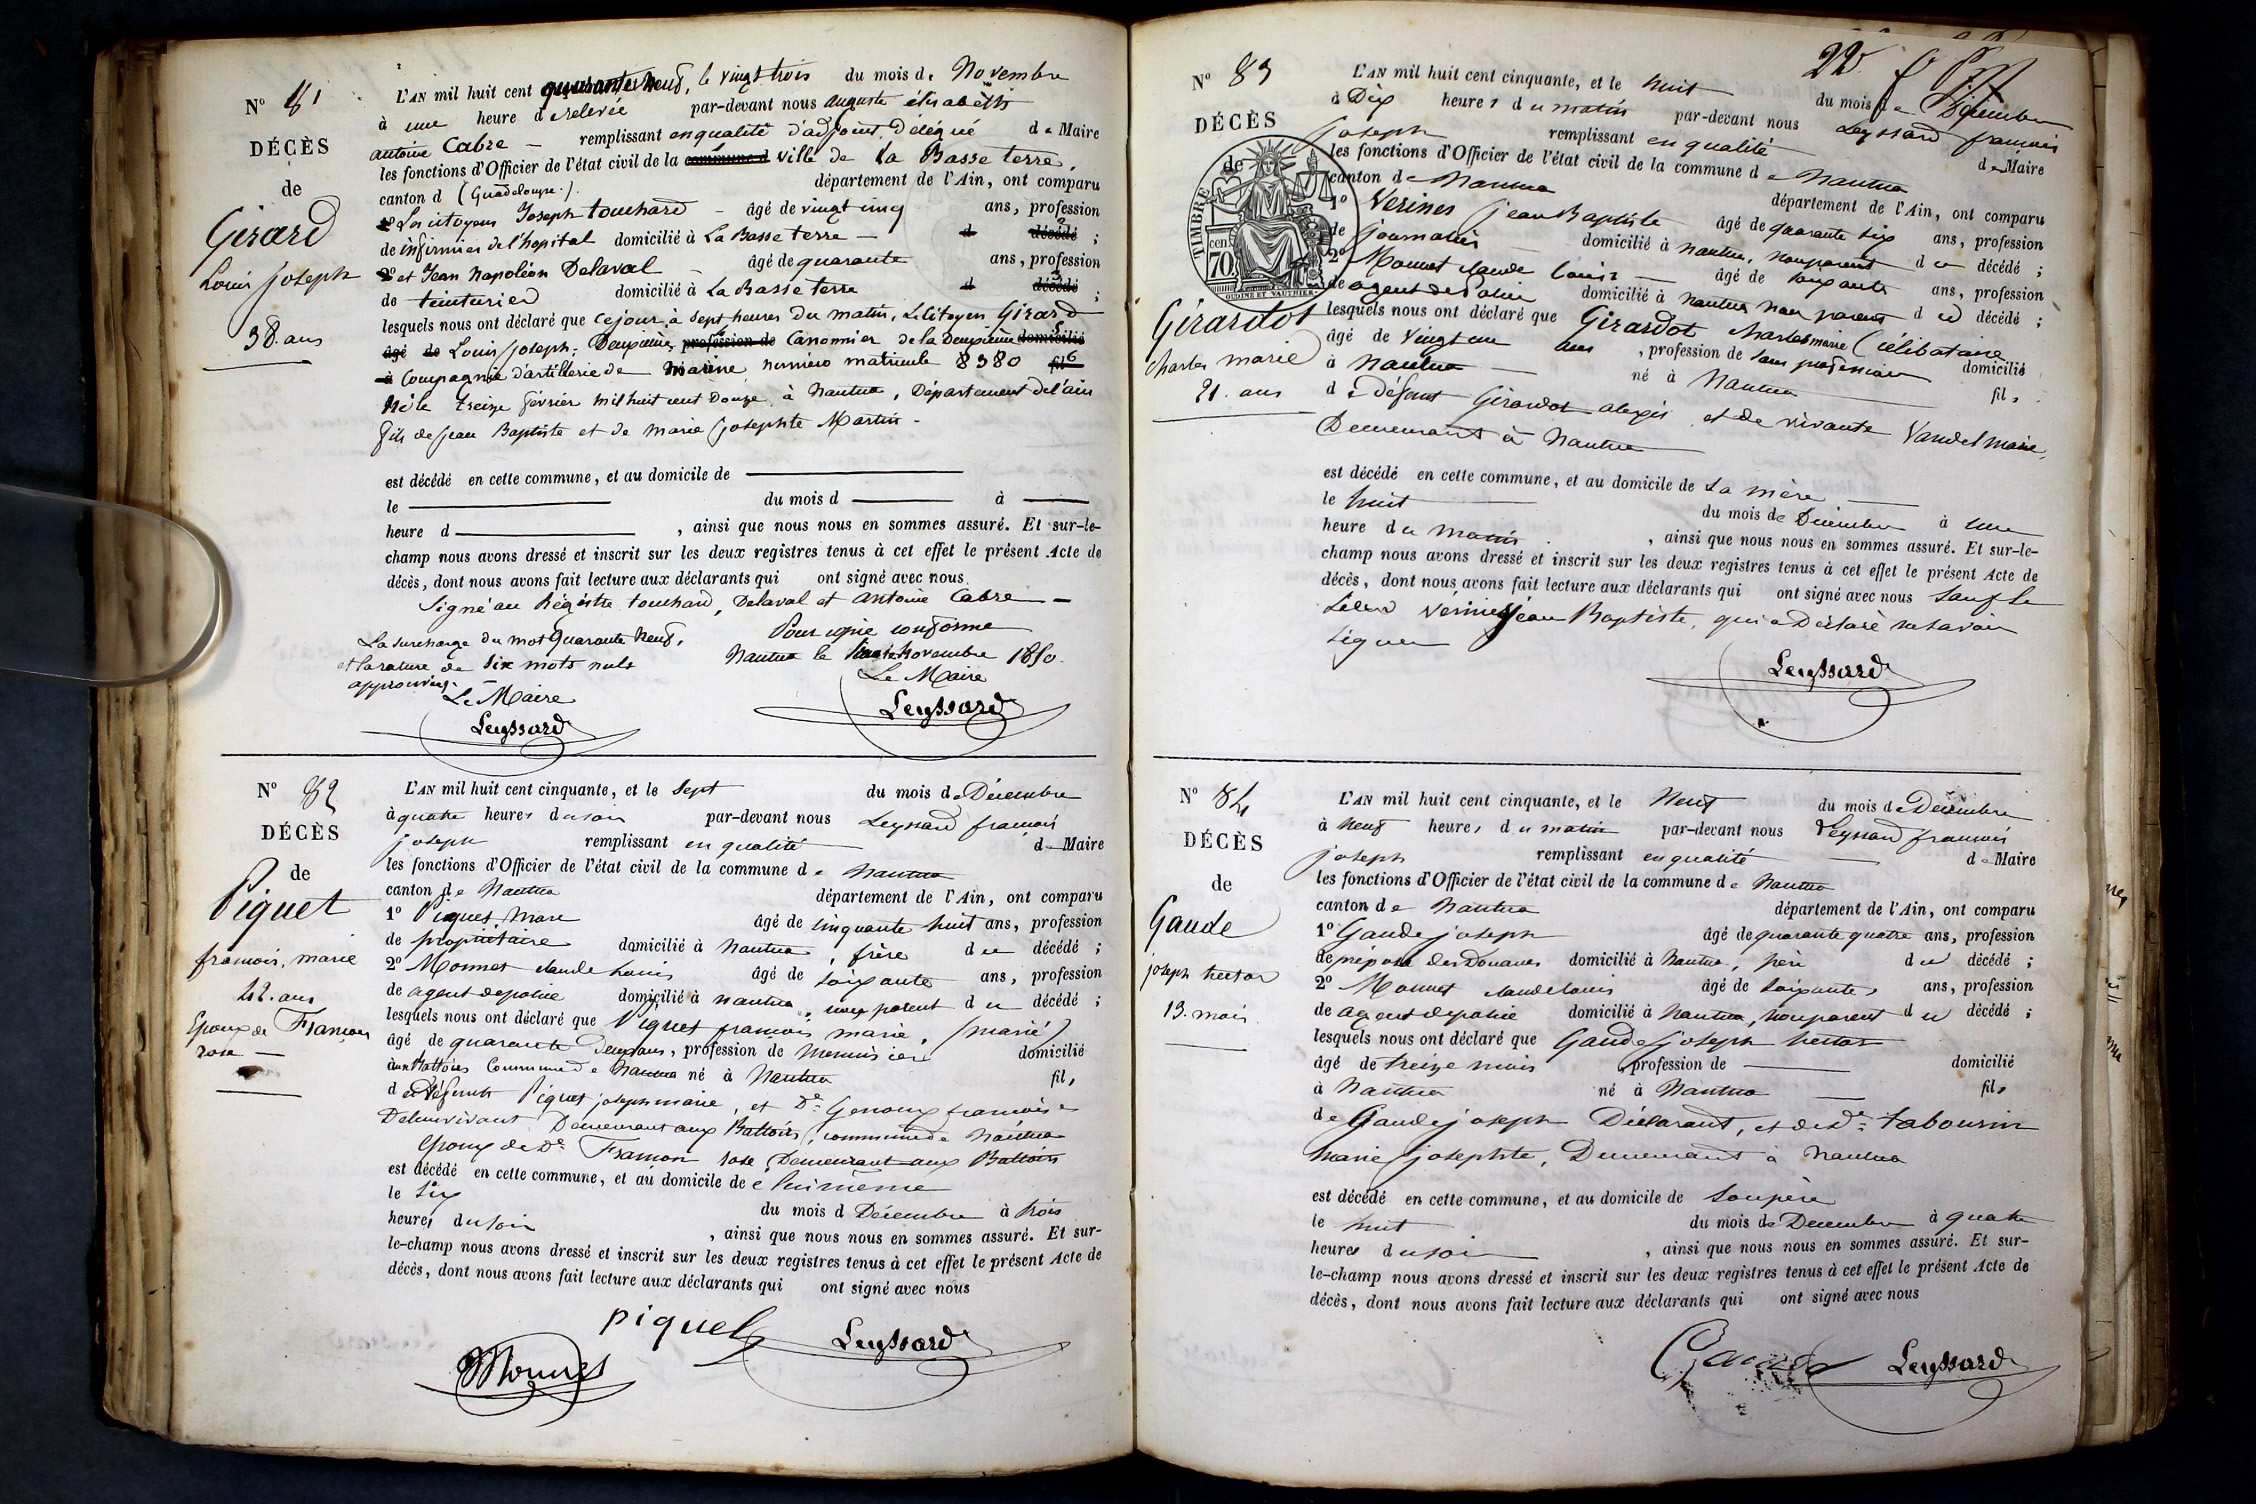 N° 81
DÉCÈS
de
Girard
Louis Joseph
38. ans
L'AN mil huit cent quarante Neuf, le vingt trois du mois de Novembre
à une heure de relevée par-devant nous Auguste Elisabeth
antoine Cabre remplissant en qualité d'adjoint Délégué de Maire
les fonctions d'Officier de l'état civil de la commune d ville de La Basse terre,
canton d (Guadeloupe.) département de l'Ain, ont comparu
1° Les citoyens Joseph touchard âgé de vingt cinq ans, profession
de infirmier de l'hopital domicilié à La Basse terre d décédé ;
2° et Jean Napoléon Delaval âgé de quarante ans, profession
de teinturier domicilié à La Basse terre d décédé ;
lesquels nous ont déclaré que ce jour à sept heures du matin, Le Citoyen Girard
âgé de Louis Joseph, Deuxième profession de Canonnier de la Deuxième domicilié
à Compagnie d'artillerie de Marine numéro matricule 8380 fil
Né le treize février mil huit cent Douze à Nantua, Département de l'ain
fils de Jean Baptiste et de Marie Josephte Martin
est décédé en cette commune, et au domicile de
le du mois d à
heure d , ainsi que nous nous en sommes assuré. Et sur-le-
champ nous avons dressé et inscrit sur les deux registres tenus à cet effet le présent Acte de
décès, dont nous avons fait lecture aux déclarants qui ont signé avec nous.
Signé au Régistre touchard, Delaval et Antoine Cabre
La surcharge du mot Quarante Neuf,
et la rature de six mots nuls
approuvés.
Le Maire
Leyssard
Pour copie conforme
Nantua le Novembre 1850.
Le Maire
Leyssard
N° 82
DÉCÈS
de
Piguet
françois, marie
42. ans
Epoux de Framon
rose
L'AN mil huit cent cinquante, et le Sept du mois de Décembre
à quatre heures du soir par-devant nous Leyssard françois
joseph remplissant en qualité de Maire
les fonctions d'Officier de l'état civil de la commune de Nantua
canton de Nantua département de l'Ain, ont comparu
1° Piguet Marc âgé de cinquante huit ans, profession
de propriétaire domicilié à Nantua, frère du décédé ;
2° Monnet claude Louis âgé de soixante ans, profession
de agent de police domicilié à nantua, non parent du décédé ;
lesquels nous ont déclaré que Piguet françois marie, (marié)
âgé de quarante Deux ans, profession de Menuisier domicilié
aux Battoirs Commune de Nantua né à Nantua fils
de défunt Piguet joseph marie, et De Genoux françoise
De lui vivant Demeurant aux Battoirs, commune de Nantua
Epoux de De Framon rose Demeurant aux Battoirs
est décédé en cette commune, et au domicile de lui même
le Six du mois d Décembre à trois
heures du soir , ainsi que nous nous en sommes assuré. Et sur-
le-champ nous avons dressé et inscrit sur les deux registres tenus à cet effet le présent Acte de
décès, dont nous avons fait lecture aux déclarants qui ont signé avec nous
piguet
Leyssard
Monnet
22.
N° 83
DÉCÈS
de
TIMBRE
70 cen.
OUDINE ET VAUTHIER
Girardot
charles marie
21. ans
L'AN mil huit cent cinquante, et le huit du mois de Décembre
à Dix heures du matin par-devant nous Leyssard françois
joseph remplissant en qualité de Maire
les fonctions d'Officier de l'état civil de la commune de Nantua
canton de Nantua département de l'Ain, ont comparu
1° Verines jean Baptiste âgé de quarante six ans, profession
de journalier domicilié à nantua, non parent du décédé ;
2° Monnet claude Louis âgé de soixante ans, profession
de agent de Police domicilié à nantua non parent du décédé ;
lesquels nous ont déclaré que Girardot charles marie (célibataire
âgé de Vingt un ans , profession de sans profession domicilié
à Nantua né à Nantua fils
de Défunt Girardot alexis et de vivante Vandel marie,
Demeurant à Nantua
est décédé en cette commune, et au domicile de La mère
le huit du mois de Décembre à une
heure du matin , ainsi que nous nous en sommes assuré. Et sur-le-
champ nous avons dressé et inscrit sur les deux registres tenus à cet effet le présent Acte de
décès, dont nous avons fait lecture aux déclarants qui ont signé avec nous Sauf Le
Verines Jean Baptiste, qui a Déclaré ne savoir
signer
Leyssard
N° 84
DÉCÈS
de
Gaude
joseph hector
13. mois
L'AN mil huit cent cinquante, et le Neuf du mois de Décembre
à Neuf heures du matin par-devant nous Leyssard françois
joseph remplissant en qualité de Maire
les fonctions d'Officier de l'état civil de la commune de Nantua
canton de Nantua département de l'Ain, ont comparu
1° Gaude joseph âgé de quarante quatre ans, profession
de préposé des Douanes domicilié à Nantua, père du décédé ;
2° Monnet claude Louis âgé de soixante ans, profession
de agent de police domicilié à Nantua, non parent du décédé ;
lesquels nous ont déclaré que Gaude joseph hector
âgé de treize mois , profession de domicilié
à Nantua né à Nantua fils
de Gaude joseph Déclarant, et de De tabourin
marie josephte, Demeurant à Nantua
est décédé en cette commune, et au domicile de son père
le huit du mois de Décembre à quatre
heures du soir , ainsi que nous nous en sommes assuré. Et sur-
le-champ nous avons dressé et inscrit sur les deux registres tenus à cet effet le présent Acte de
décès, dont nous avons fait lecture aux déclarants qui ont signé avec nous
Gaude
Leyssard